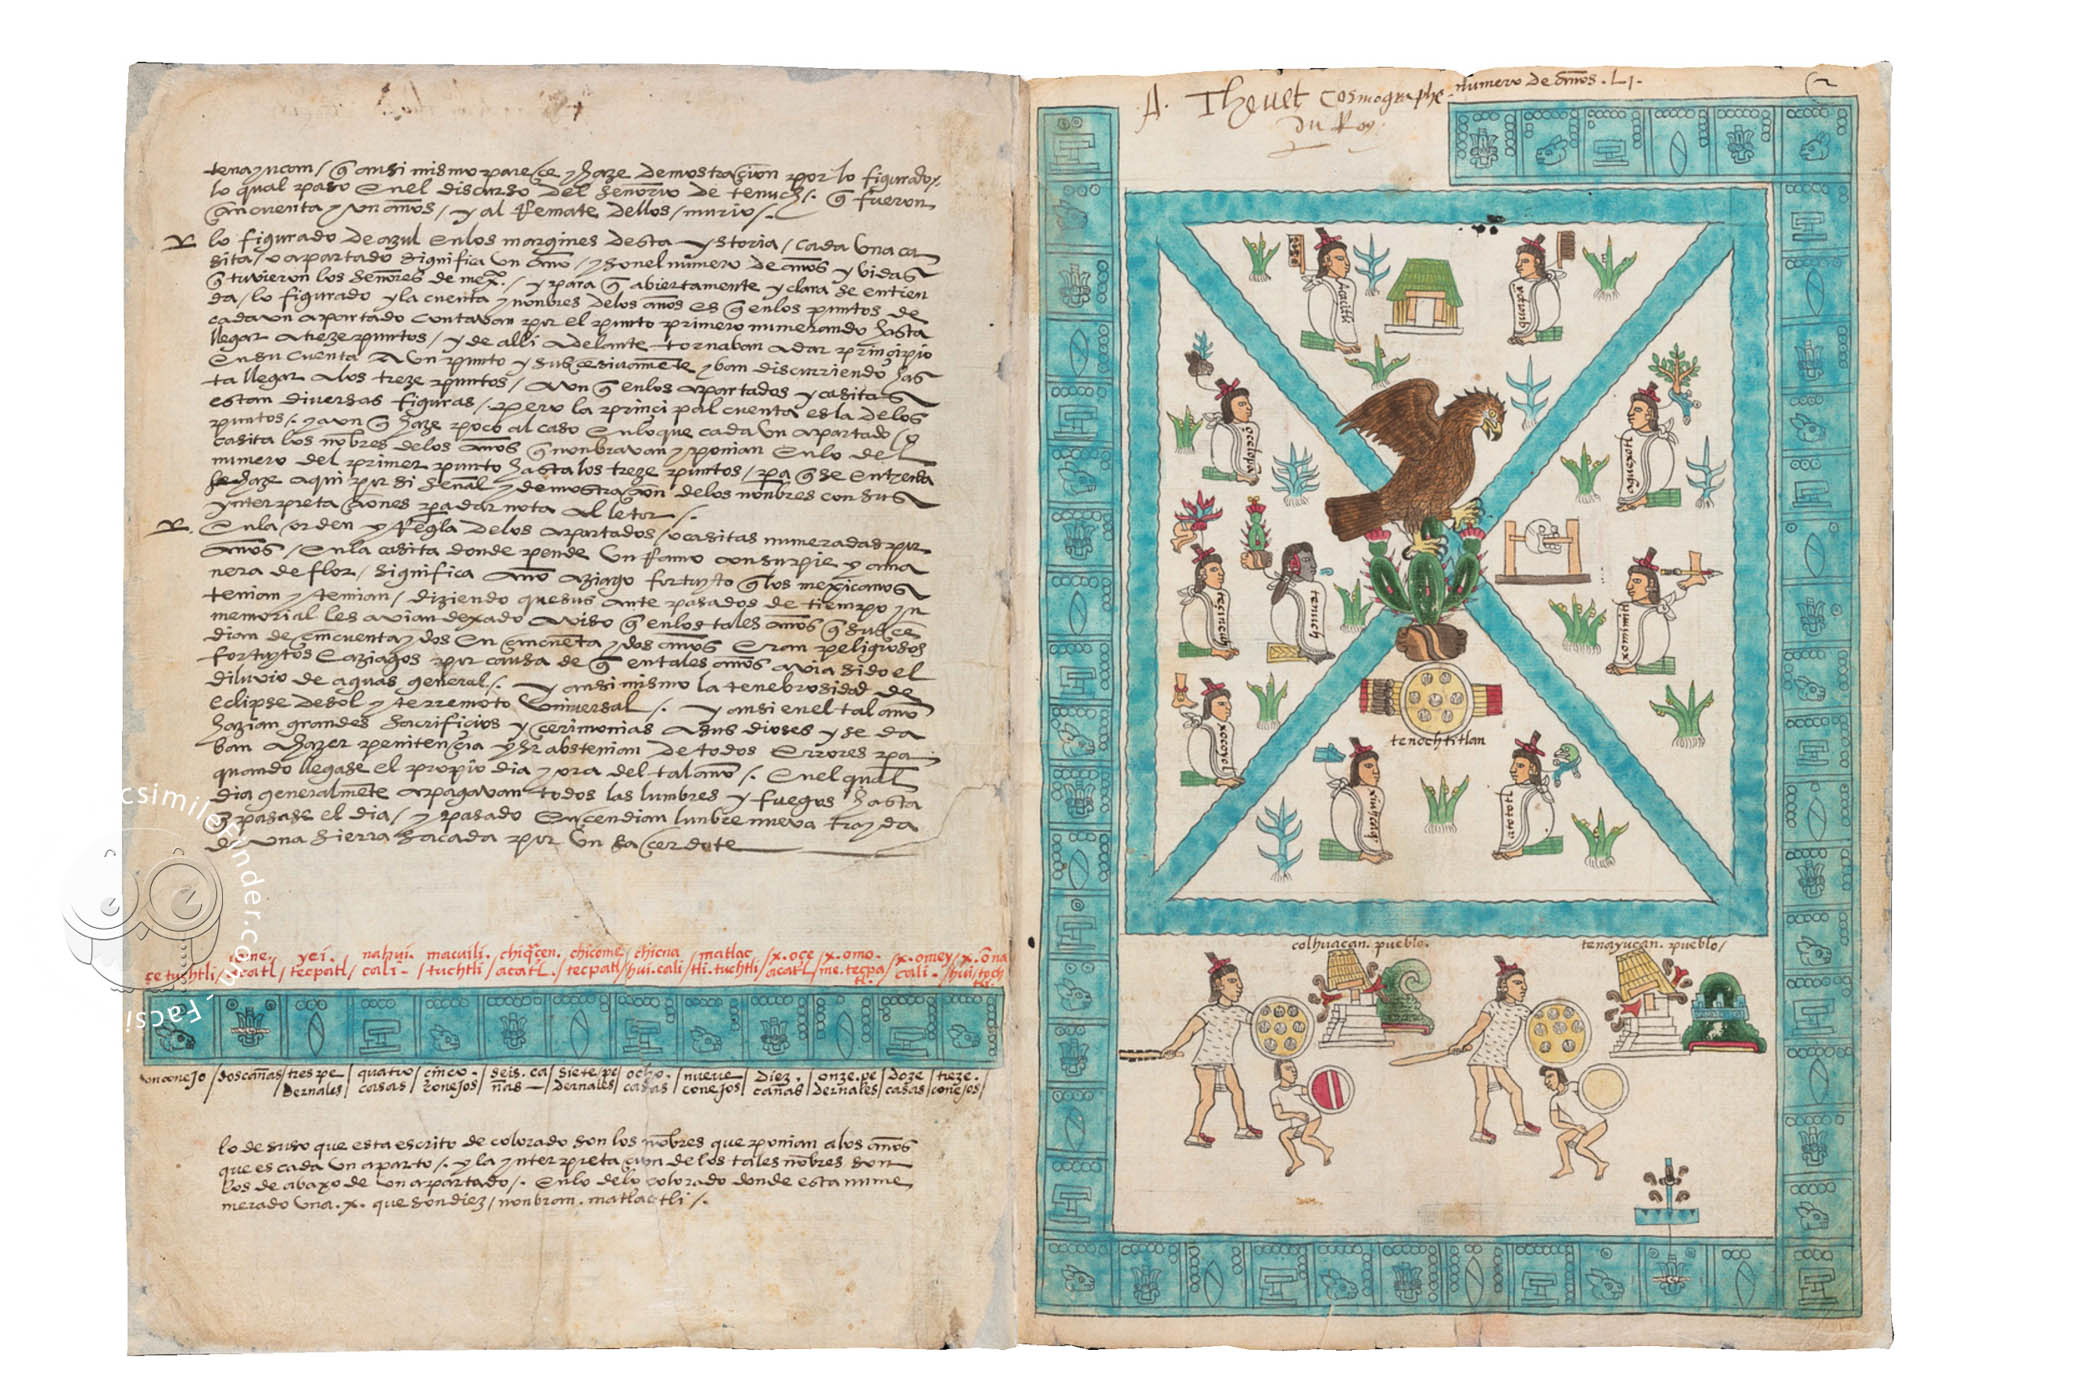 tenayucan / q̄ ansi mismo pareçe y haze demostraçion por lo figurado /.
lo qual paso en el discurso del señorio de tenuch /. q̄ fueron
çincuenta y un años / y al remate dellos / murio /.
lo figurado de azul en los margines desta ystoria / cada una ca
sita / o apartado significa un año / y son el numero de años y vidas
q̄ tuvieron los señores de mex.co / y para q̄ abiertamente y clara se entien
da / lo figurado y la cuenta y nonbres de los años es q̄ en los puntos de
cada un apartado contavan por el punto primero numerando hasta
llegar a treze puntos / y de alli adelante tornaban a dar prinçipio
en su cuenta a un punto y subçesivamēte yban discurriendo has
ta llegar a los treze puntos / aun q̄ en los apartados y casitas
estan diversas figuras / pero la prinçipal cuenta es la de los
puntos /. y aun q̄ haze poco al caso en lo que cada un apartado o
casita los nōbres de los años q̄ nonbravan y ponian en lo del
numero del primer punto hasta los treze puntos / pa q̄ se entienda
se haze aqui por si señal y demostraçion de los nōbres con sus
ynterpretaçiones pa dar nota al letor /.
en la orden y regla de los apartados / o casitas numeradas por
años / en la casita donde pende un ramo con su pie y ama
nera de flor / significa año aziago fortuyto q̄ los mexicanos
tenian y temian / diziendo que sus ante pasados de tiempo yn
memorial les avian dexado aviso q̄ en los tales años q̄ subçe
dian de çincuenta y dos en çincuēta y dos años eran peligrosos
fortuytos e aziagos por causa de q̄ en tales años avia sido el
diluvio de aguas general /. y ansi mismo la tenebrosidad de
eclipse de sol y terremoto universal /. y ansi en el tal año
hazian grandes sacrifiçios y çerimonias a sus dioses y se da
ban a hazer penitençia y se abstenian de todos errores pa
quando llegase el propio dia y ora del tal año /. en el qual
dia generalmēte apagavan todos las lumbres y fuegos hasta
q̄ pasase el dia / y pasado ençendian lunbre nueva trayda
de una sierra sacada por un saçerdote
çe tuchtli / ome acatl / yei. tecpatl / nahui. cali - / macuili. tuchtli / chiq̄çen. acatl. / chicome tecpatl / chicna hui. cali / matlac tli. tuchtli / .x. oçe acatl / .x. omo. me. tecpa tl. / .x. omey cali. / .x. ōna hui / toch tli.
un conejo / dos cañas / tres pe dernales / quatro casas / cinco. conejos / seis. ca ñas / siete. pe dernales / ocho. casas / nueve conejos / diez. cañas / onze. pe dernales / doze casas / treze. conejos /
lo de suso que esta escrito de colorado son los nōbres que ponian a los años
que es cada un aparto /. y la ynterpretaçion de los tales nōbres son
los de abaxo de un apartado /. en lo de lo colorado donde esta nume
merado una .x. que son diez / nonbran. matlactli /.
A. Thevet Cosmographe
du Roy.
numero de años. LI.
acacitli
quapa
oçelopa
xocoyol
teçineuh
tenuch
ahuexotl
xomimitl
xiuhcaq
atototl
tenochtitlan
colhuacan. pueblo.
tenayucan. pueblo /
FacsimileFinder.com